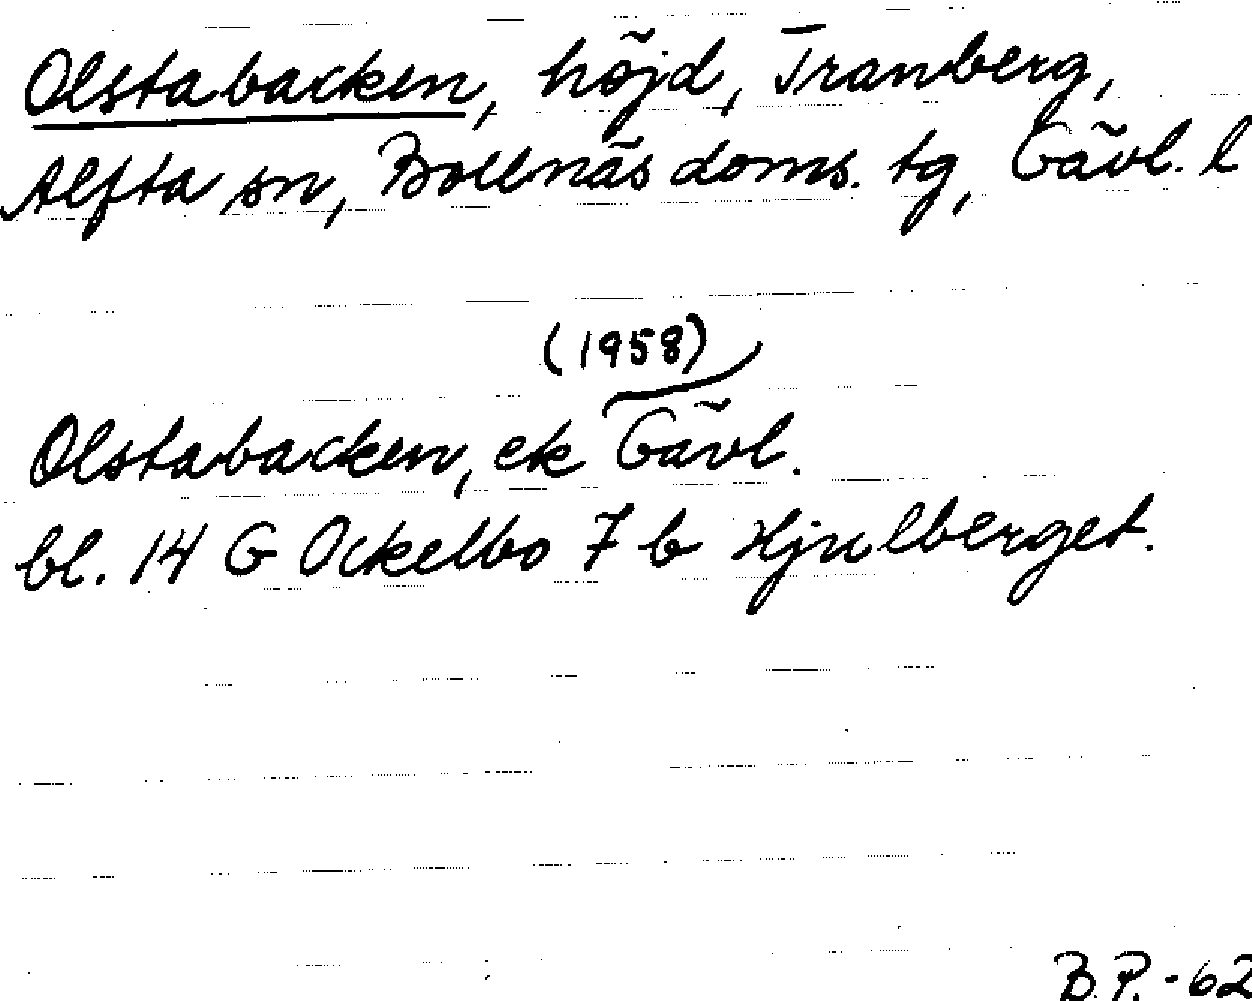 Olstabacken, höjd, Tranberg,
Alfta sn, Bollnäs doms. tg, Gävl. l
(1958)
Olstabacken, ek Gävl.
bl. 14 G Ockelbo 7 b Hjulberget.
B.P. -62